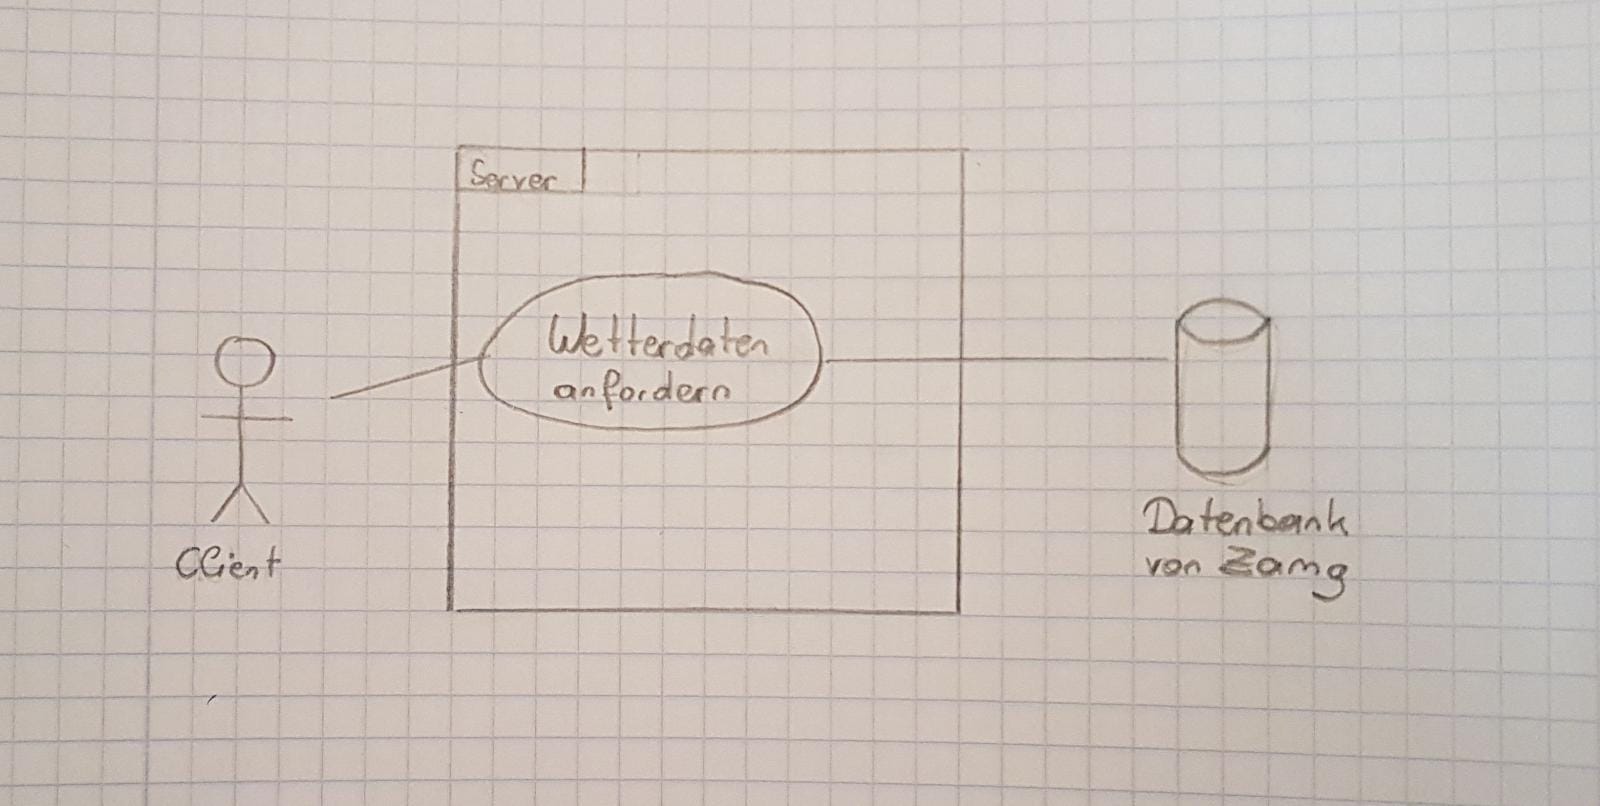 Server
Wetterdaten
anfordern
Client
Datenbank
von Zamg